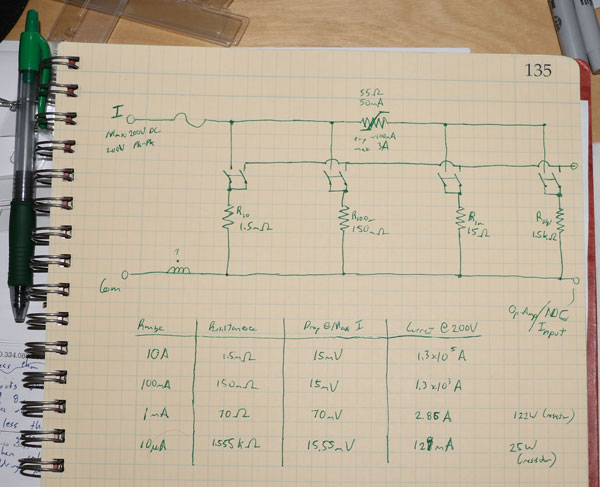 135
55Ω
50mA
I
Max 200V DC
200V Pk-Pk
trip ~100mA
max 3A
R10
1.5mΩ
R100m
150mΩ
R1m
15Ω
1.5kΩ
?
Com
Op-Amp/ADC
Input
Range Resistance Drop @ Max I Current @ 200V
10A 1.5mΩ 15mV 1.3x10⁵ A
100mA 150mΩ 15mV 1.3x10³ A
1mA 70Ω 70mV 2.85A 122W (resistor)
10μA 1.555kΩ 15.55mV 128mA 25W
(resistor)